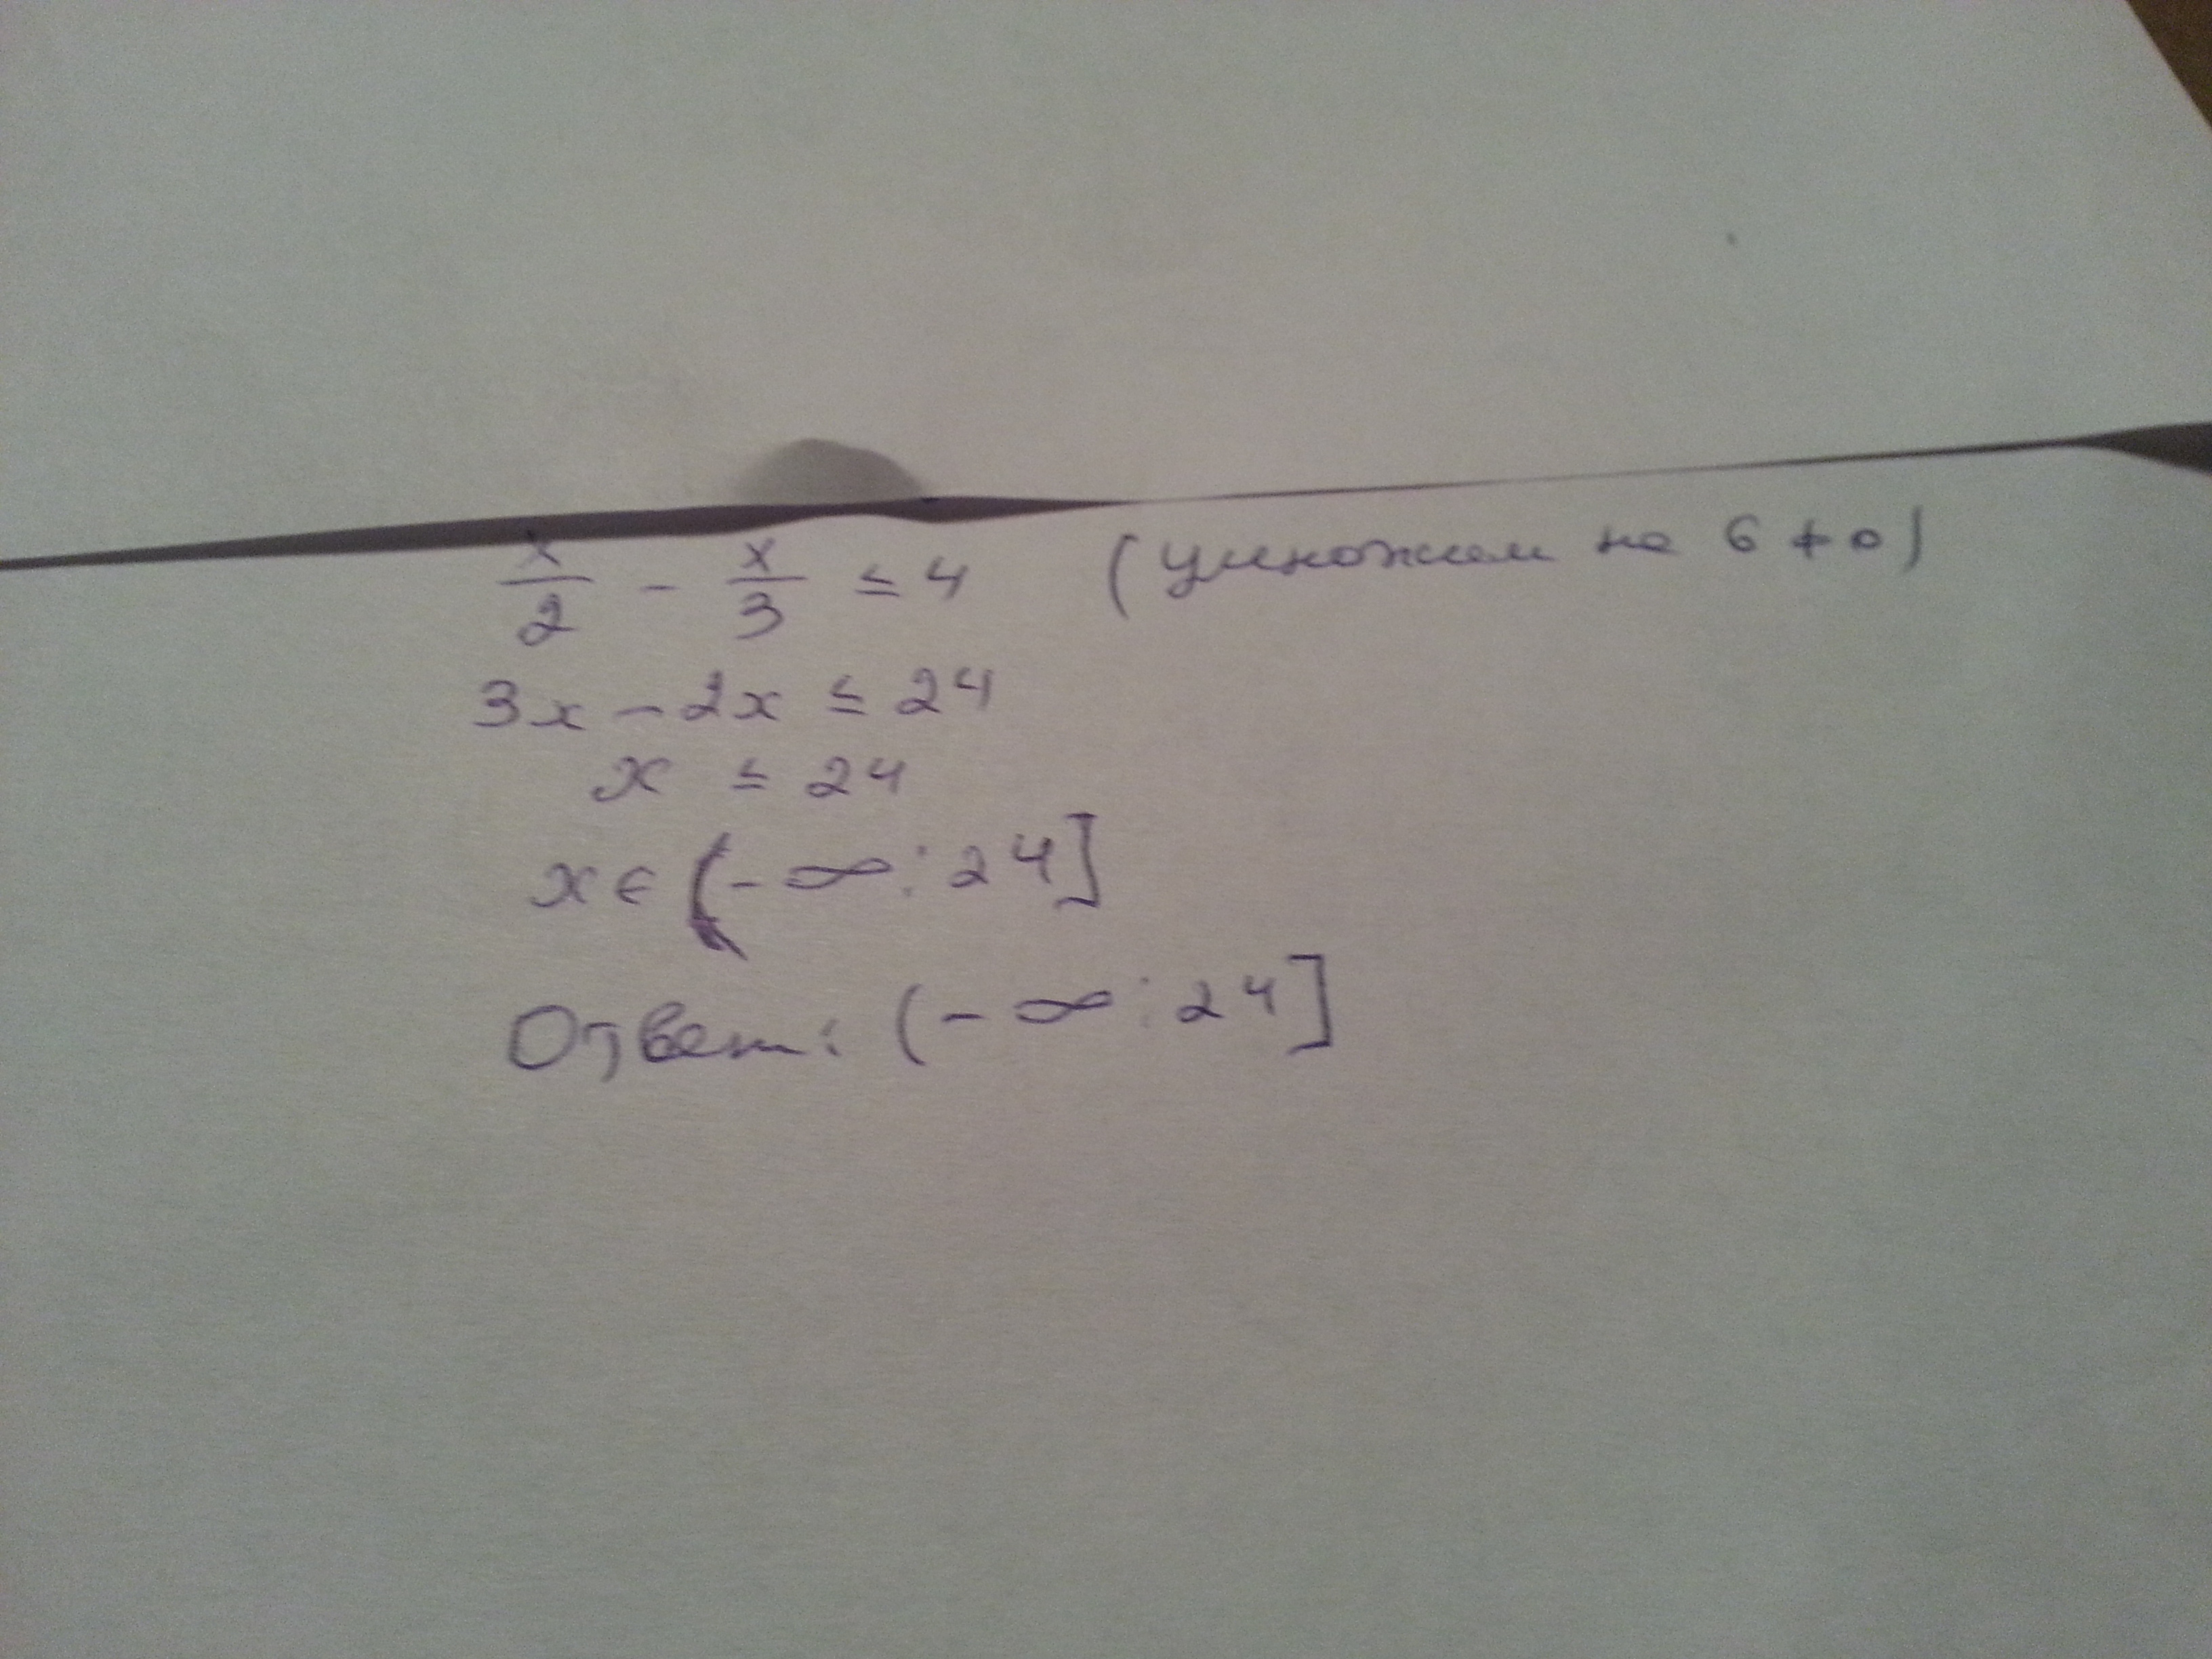 x/2 - x/3 ≤ 4 (умножим на 6 ≠ 0)
3x - 2x ≤ 24
x ≤ 24
x ∈ (-∞: 24]
Ответ: (-∞: 24]